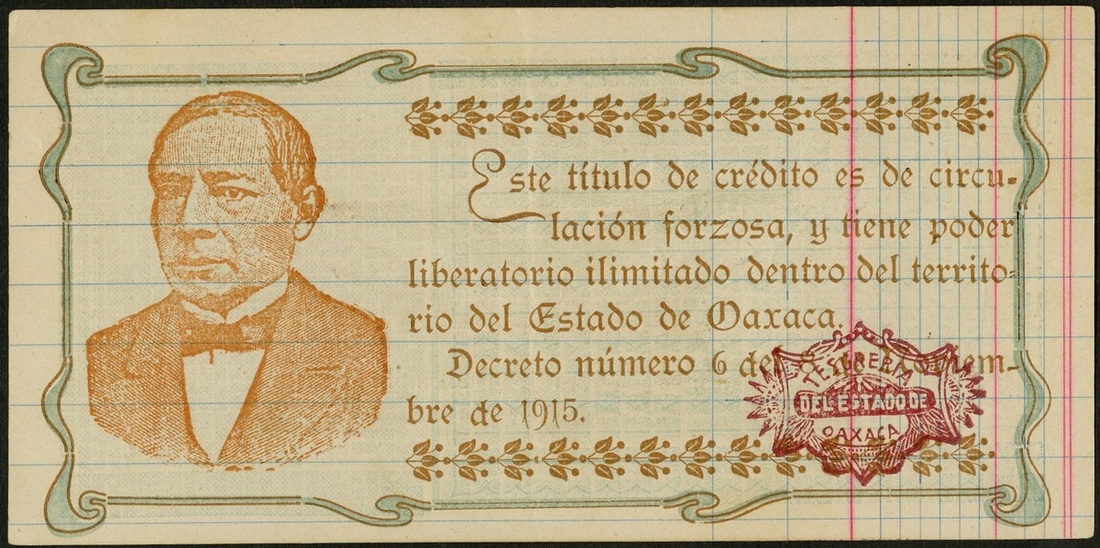 Este título de crédito es de circu-
lación forzosa, y tiene poder
liberatorio ilimitado dentro del territo-
rio del Estado de Oaxaca.
Decreto número 6 del
bre de 1915.
TESORERIA
DEL ESTADO DE
OAXACA